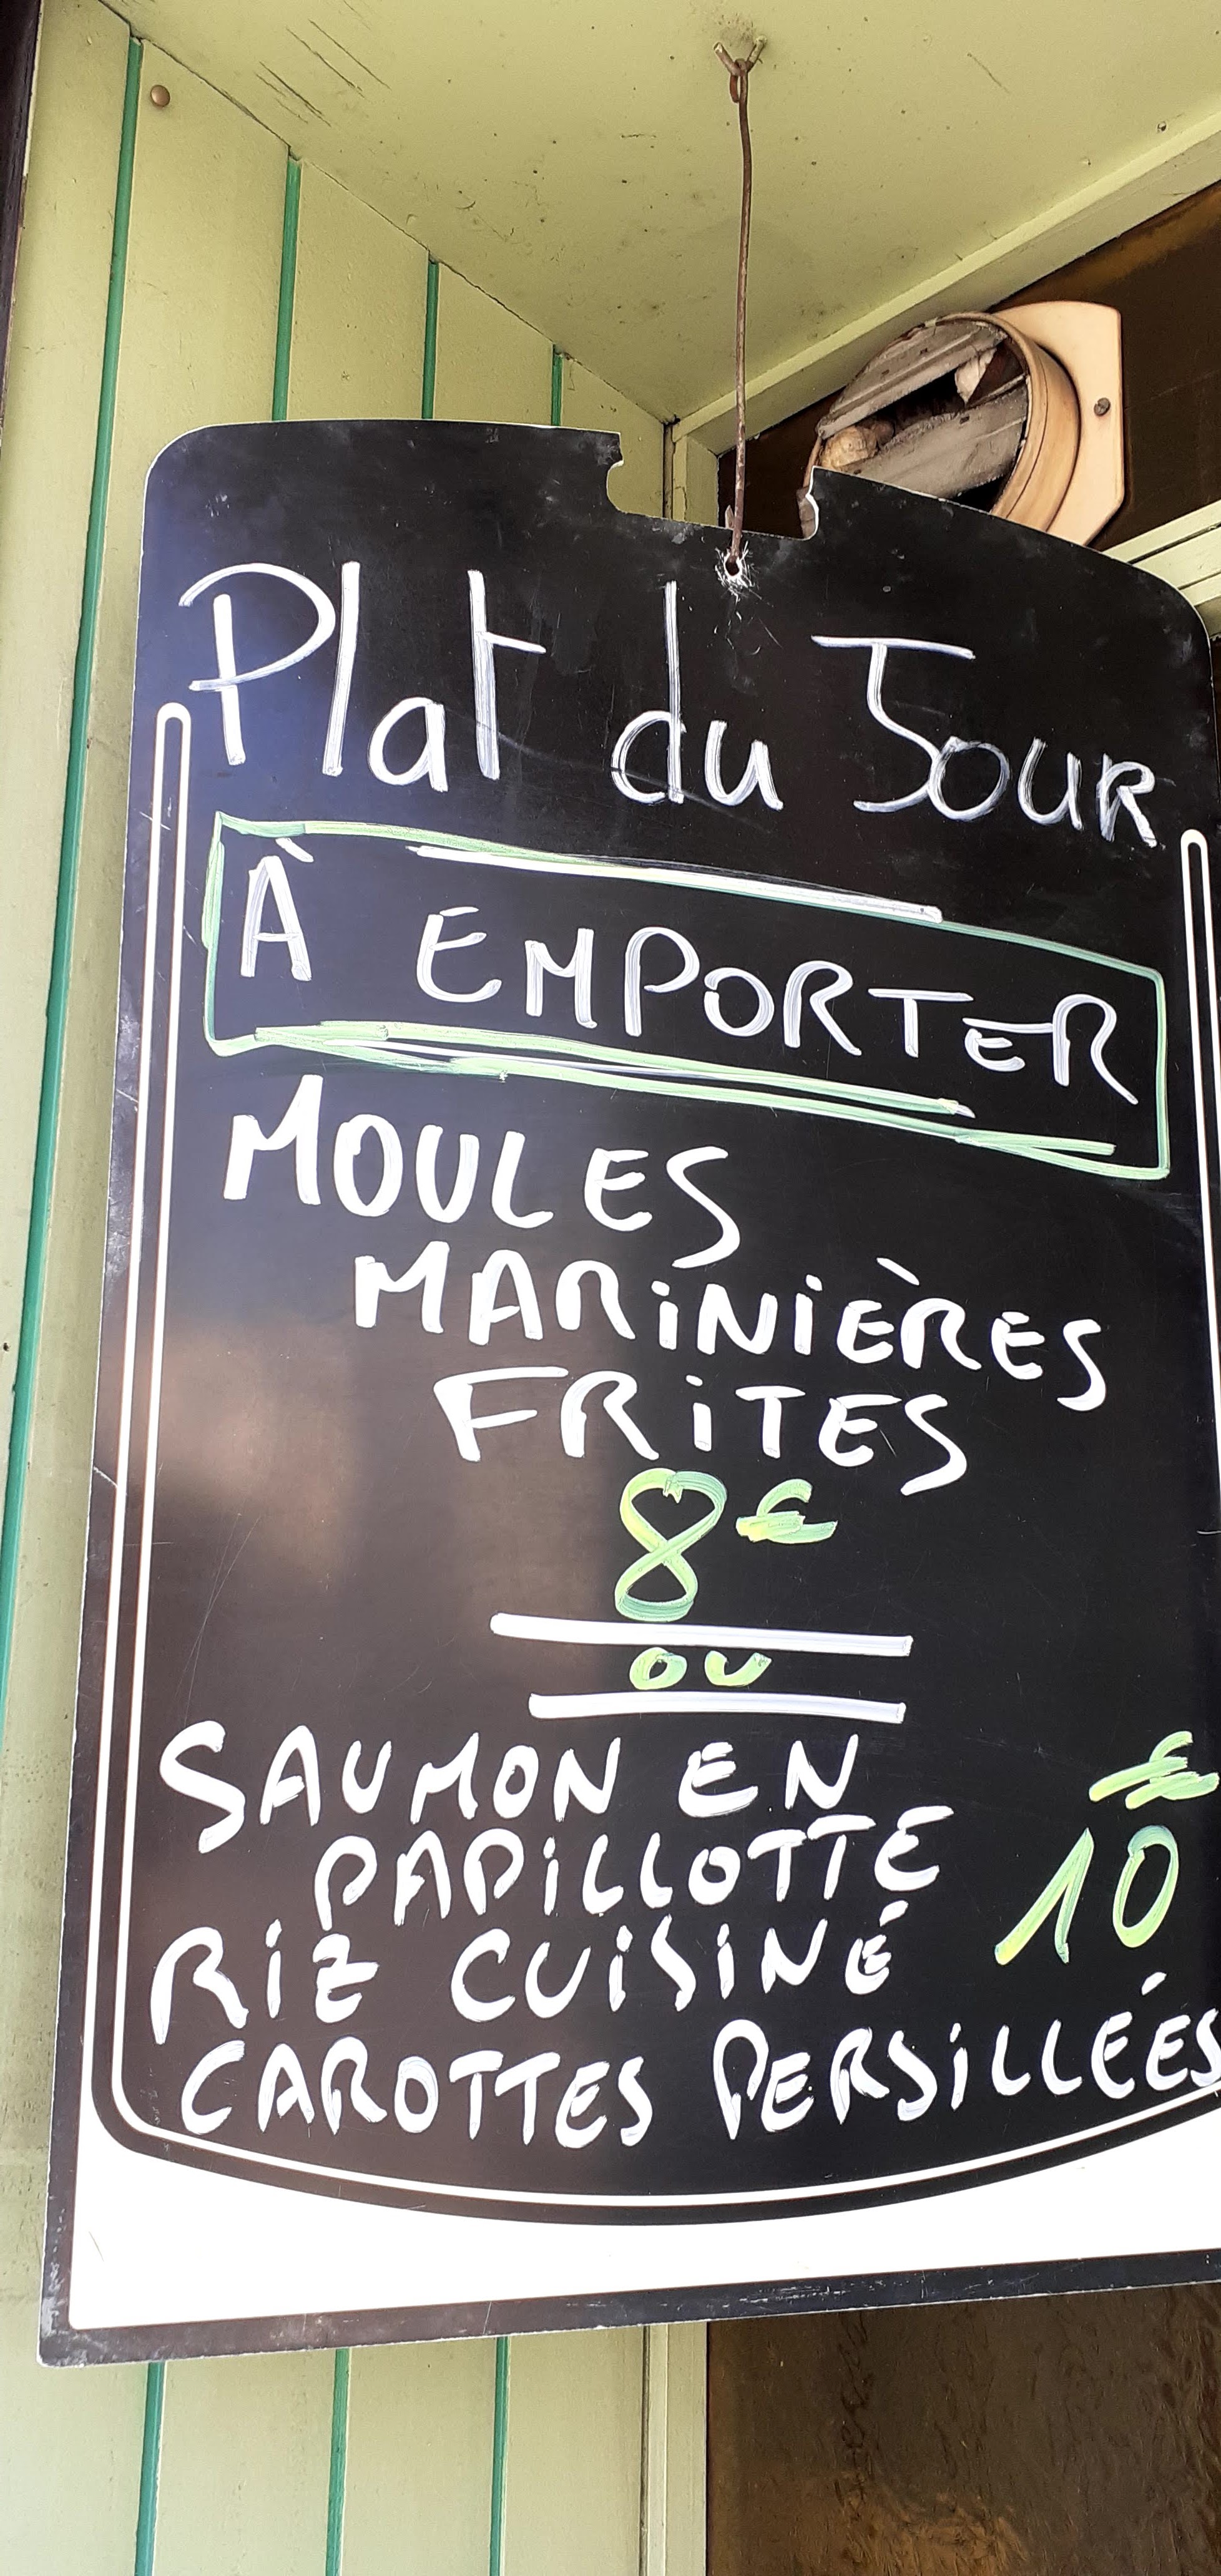 Plat du Jour
À EMPORTER
MOULES
MARINIÈRES
FRITES
8€
OU
SAUMON EN
PAPILLOTTE
€
10
RIZ CUISINÉ
CAROTTES PERSILLÉES